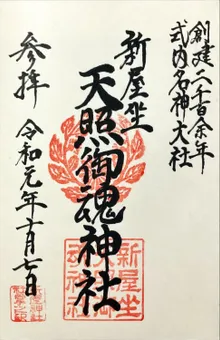 創建二千百余年
式内名神大社
新屋坐
天照御魂神社
参拝
令和元年十一月七日
新屋坐
天照御
魂神社